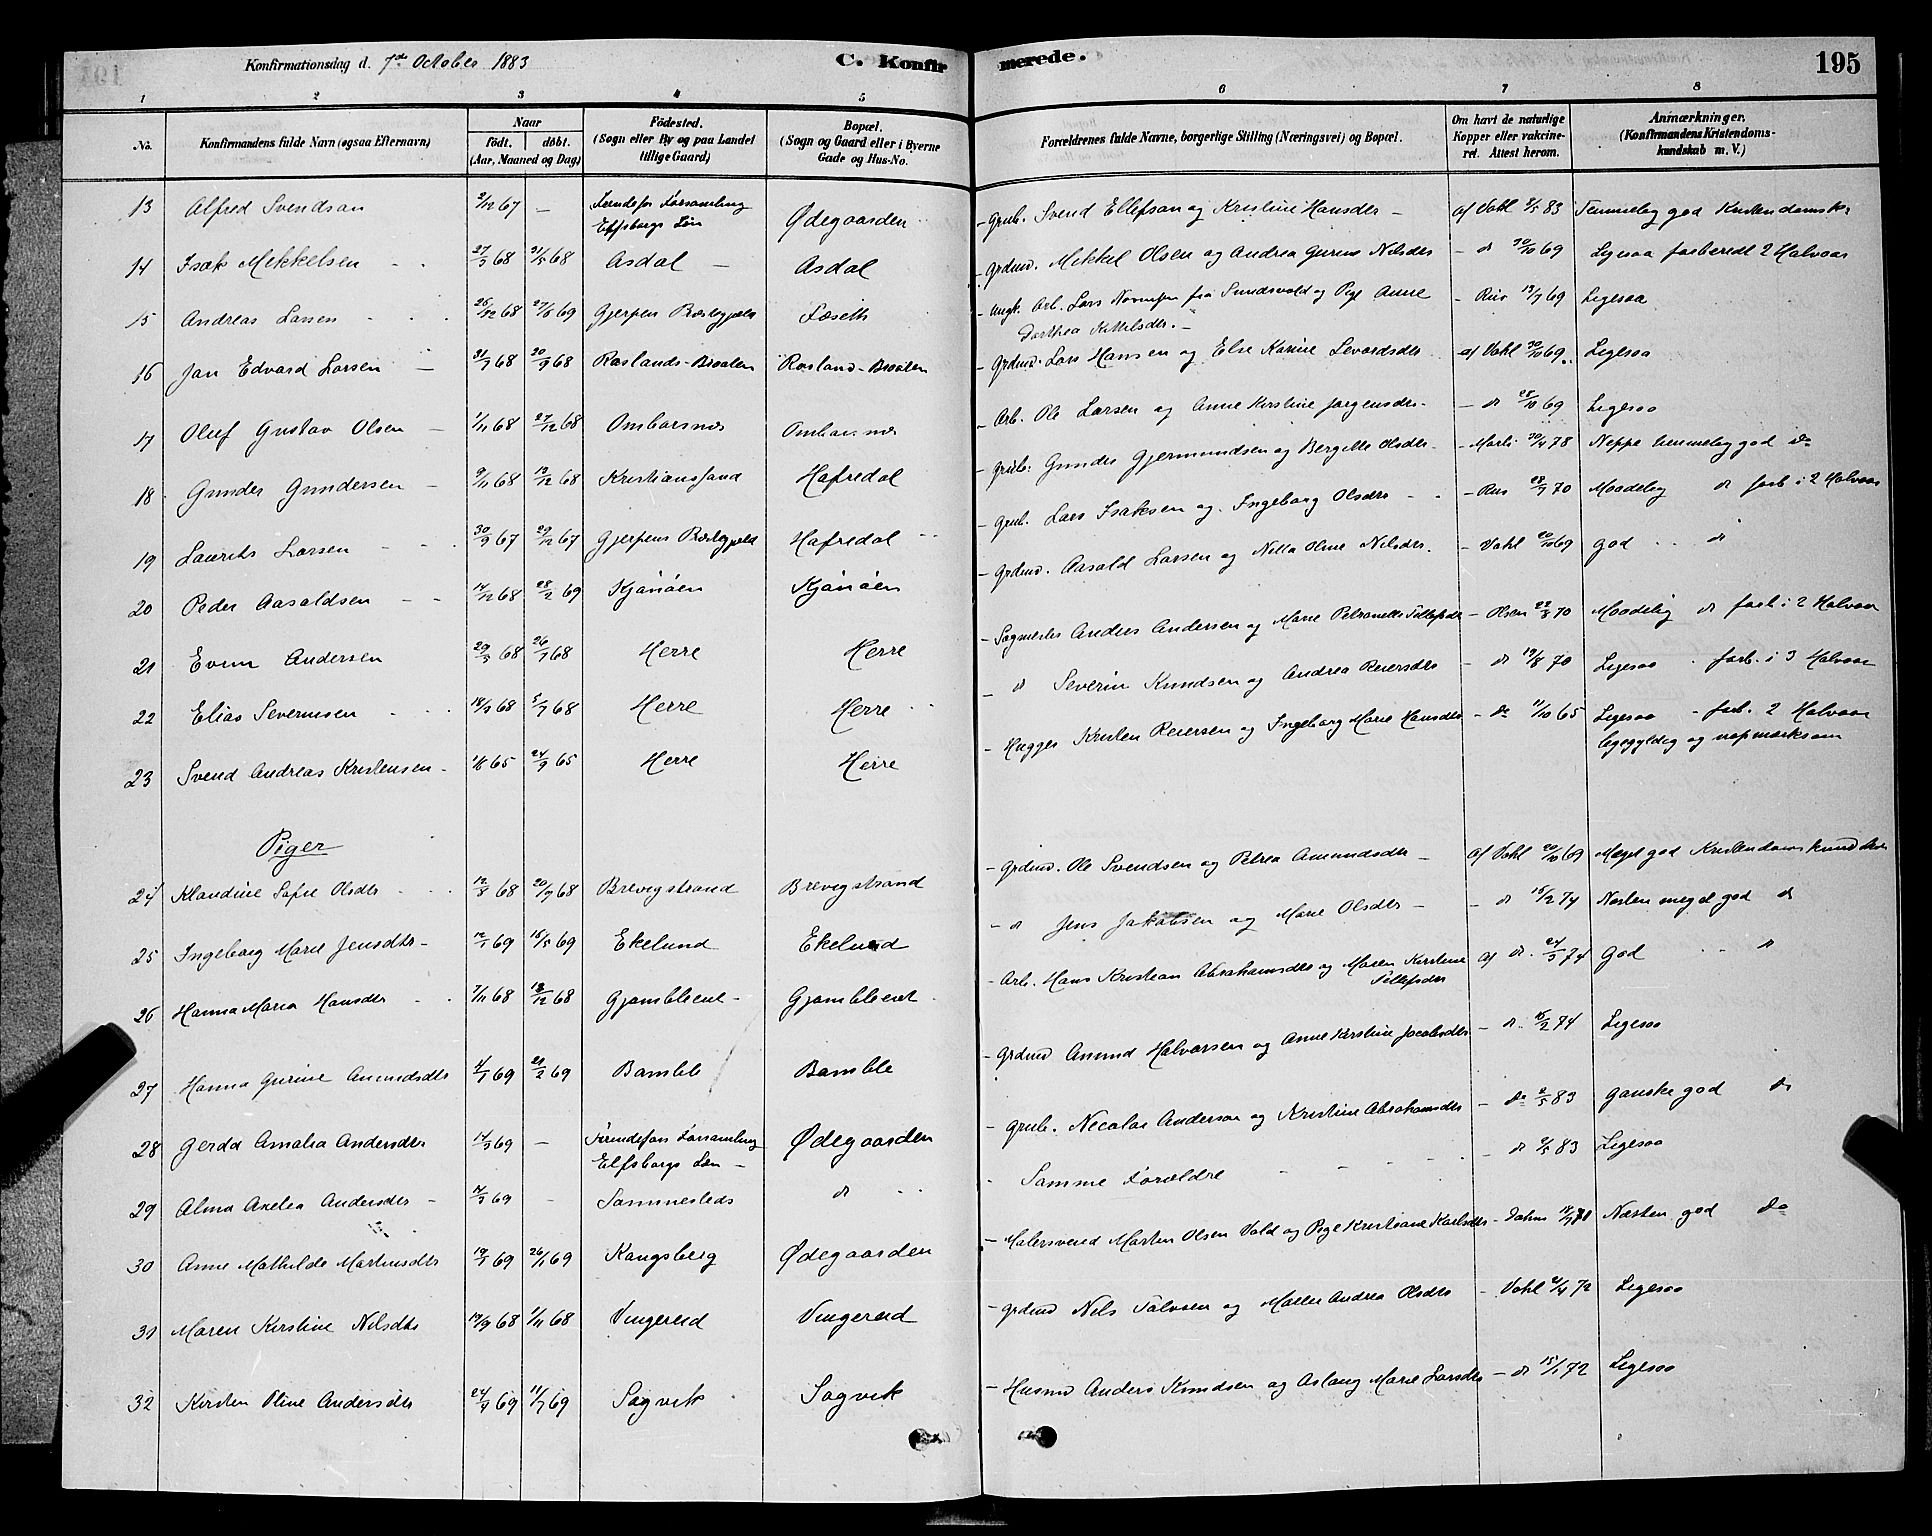 Konfirmationsdag d. 7de October 1883
C. Konfirmerede.
195
1 2 3 4 5 6 7 8
No. Konfirmandens fulde Navn (ogsaa Efternavn) Naar födt. döbt. (Aar, Maaned og Dag) Födested. (Sogn eller By og paa Landet tillige Gaard) Bopæl. (Sogn og Gaard eller i Byerne Gade og Hus-No. Forældrenes fulde Navne, borgerlige Stilling (Næringsvei) og Bopæl. Om havt de naturlige Kopper eller vakcineret. Attest herom. Anmærkninger. (Konfirmandens Kristendomskundskab m. V.)
13 Alfred Svendsan 2/12 67 — Forsamling Elfsborgs Län Ødegaarden - Grub. Svend Ellefsan og Kristine Hansdtr - af Vahl 2/5 83 Temmelig god Kristendomsk.
14 Isak Mikkelsen 27/3 68 31/5 68 Asdal Asdal - Grdmd. Mikkel Olsen og Andrea Gurine Nilsdtr - do 20/10 69 Ligesaa forberedt 2 Halvaar
15 Andreas Larsen 26/12 68 27/6 69 Gjerpen Præstegjeld Fæseth - Ungk. Arb. Lars fra Sundsvold og Pige Anne Dorthea Kittilsdtr. - Riis 13/7 69 Ligesaa
16 Jan Edvard Larsen 31/7 68 20/9 68 Røslands-Braaten Røsland-Braaten - Grdmd. Lars Hansen og Else Karine Sevardsdtr af Vahl 20/10 69. Ligesaa
17 Oluf Gustav Olsen 1/11 68 27/12 68 Ombarsnes Ombarsnes - Arb. Ole Larsen og Anne Kirstine Jørgensdtr - do 28/10 69 Ligesaa
18 Gunder Gundersen 9/11 68 13/12 68 Kristianssand Hafredal - Grub. Gunder Gjermundsen og Bergitte Olsdtr - 30/4 78 Neppe temmelig god do
19 Laurits Larsen 30/9 67 29/12 67 Gjerpens Præstegjeld Hafredal - Grub. Lars Isaksen og Ingeborg Olsdtr - Riis 28/7 70 Maadelig do forb i 2 Halvaar
20 Peder Aasoldsen 14/12 68 28/2 69 Kjönöen Kjönöen - Grdmd. Aasold Larsen og Nilla Oline Nilsdtr. - Vahl 20/10 69 god do
21 Even Andersen 29/3 68 26/7 68 Herre Herre - Sagmester Anders Andersen og Marie Petronelle Tellefsdtr - Olsen 22/8 70 Maadelig do forb i 2 Halvaar
22 Elias Severinsen 18/3 68 5/7 68 Herre Herre - do Severin Knudsen og Andrea Reiersdtr - do 19/8 70 Ligesaa forb. i 3 Halvaar
23 Svend Andreas Kristensen 1/8 65 24/9 65 Herre Herre - Hugger Kristen Reiersen og Ingeborg Marie Hansdtr - do 11/10 65 Ligesaa - forb. 2 Halvaar ligegyldig og uopmærksom
Piger
24 Klaudine Sofie Olsdtr 12/8 68 20/9 68 Brevigstrand Brevigstrand - Grdmd. Ole Svendsen og Petrea Amundsdtr - af Vahl 20/10 69 Meget god Kristendoms kundskab
25 Ingeborg Marie Jensdtr 12/1 69 16/5 69 Ekelund Ekelund - do Jens Jakobsen og Marie Olsdtr - do 15/12 74 Næsten meget god do
26 Hanna Maria Hansdtr 7/11 68 13/12 68 Gjømbleeiet Gjømbleeiet - Arb. Hans Kristian Abrahamsdtr og Maren Kirstine Tellefsdtr af do. 24/3 74 god do
27 Hanna Gurine Amundsdtr 4/1 69 21/2 69 Bamble Bamble - Grdmd Amund Halvorsen og Anne Kirstine Jacobsdtr - do. 15/2 74 Ligesaa
28 Gerda Amalia Andersdtr 14/3 69 — Forsamling Elfsborgs Län Ødegaarden - Grub. Necolai Anderson og Kristine Abrahamsdtr - do 2/5 83 ganske god do
29 Alma Axelia Andersdtr 14/3 69 - Sammesteds do - Samme Forældre - do 2/5 83 Ligesaa
30 Anne Mathilde Martinsdtr 19/1 69 26/1 69 Kongsberg Ødegaarden - Malersvend Morten Olsen Vold og Pige Kristiane Karlsdtr - Næsten god do
31 Maren Kirstine Nilsdtr 14/9 68 1/11 68 Vingereid Vingereid - Grdmd Nils Talvsen og Maren Andrea Olsdtr - Vahl 2/4 72 Ligesaa
32 Kirsten Oline Andersdtr 24/4 69 11/7 69 Sagvik Sagvik - Husmd Anders Knudsen og Aslaug Marie Larsdtr - do 15/1 72 Ligesaa